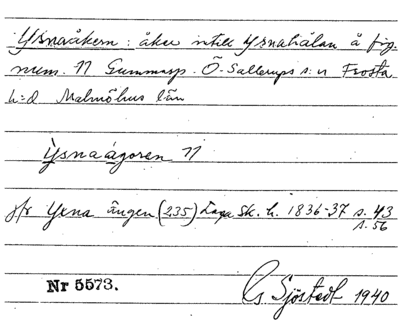 Ysnaåkern: åker intill Ysnahålan å fig.
num. 11 Gummarp. Ö. Sallerups s:n Frosta
h:d Malmöhus län
Ysnaågoren 11
jfr Yxna ängen (235) Laga Sk. h. 1836-37 s. 43
s. 56
Nr 5573.
Gs Sjöstedt 1940